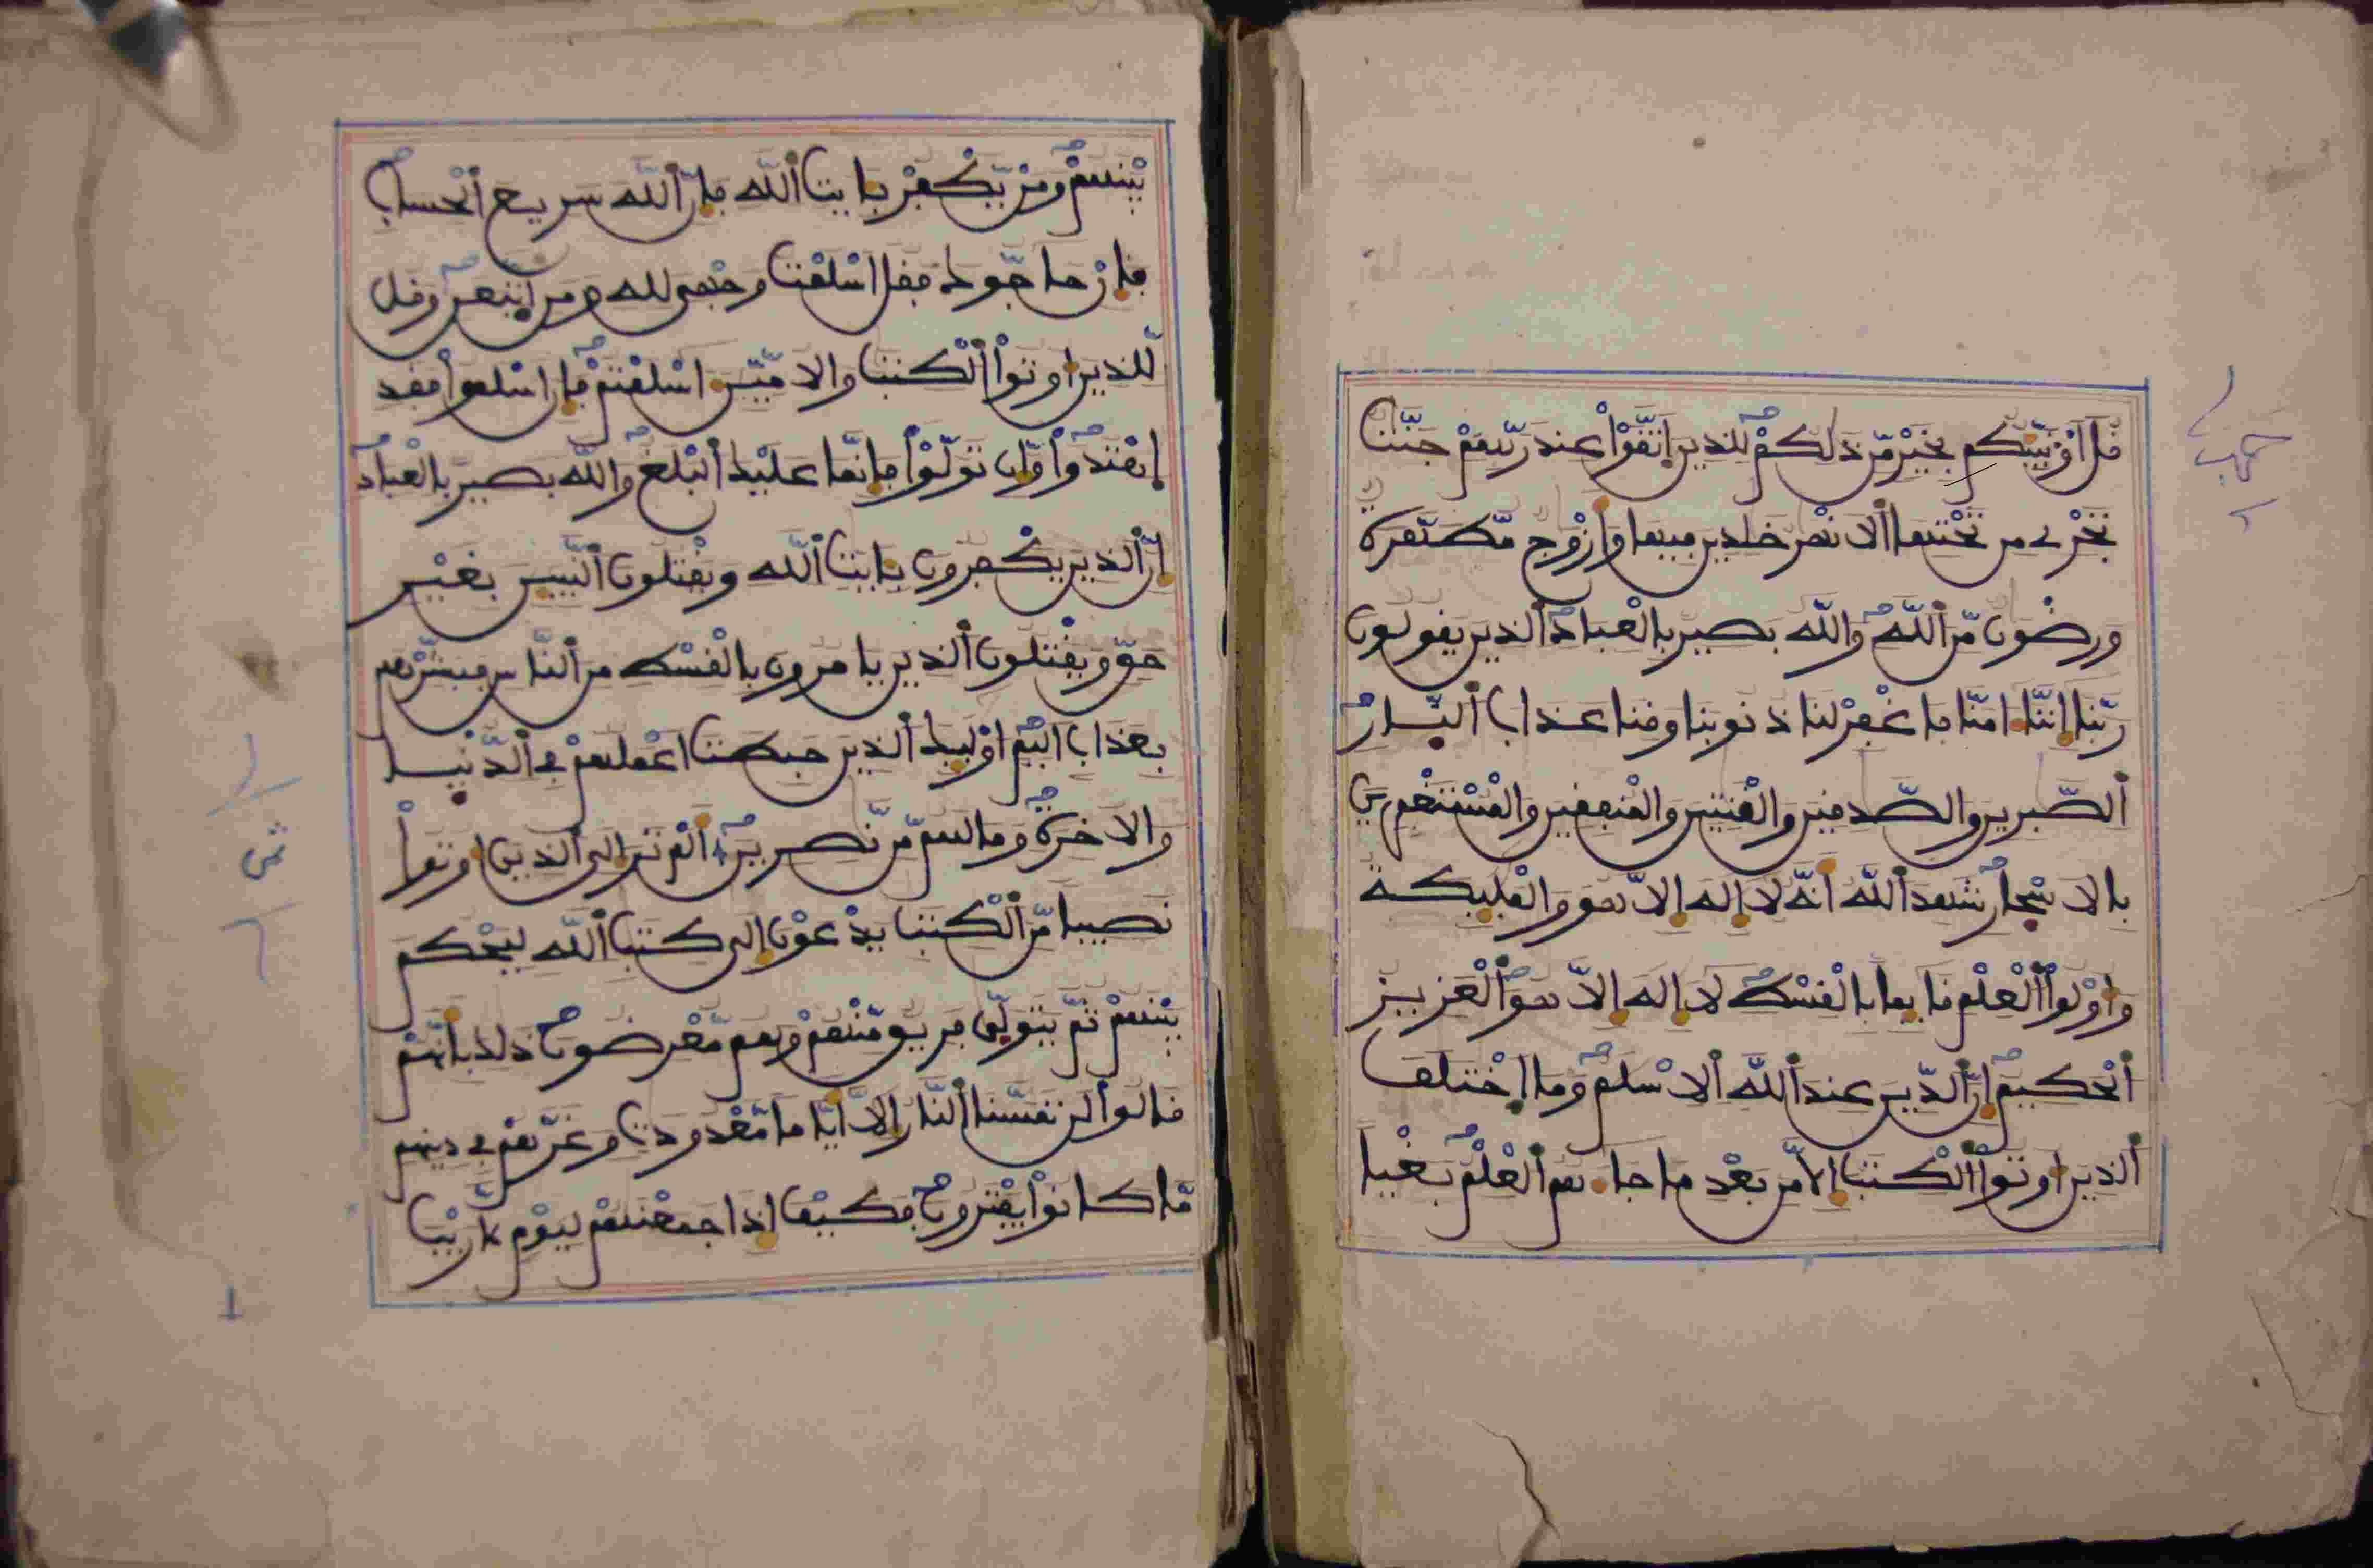 قل اونبيكم بخير من ذلكم للذين اتقوا عند ربهم جنت
تجري من تحتها الانهر خلدين فيها وازوج مطهرة
ورضون من الله والله بصير بالعباد الذين يقولون
ربنا اننا امنا فاغفر لنا ذنوبنا وقنا عذاب النار
الصبرين والصدقين والقنتين والمنفقين والمستغفرين
بالاسحار شهد الله انه لا اله الا هو والمليكة
واولوا العلم قايما بالقسط لا اله الا هو العزيز
الحكيم ان الدين عند الله الاسلم وما اختلف
الذين اوتوا الكتب الا من بعد ما جاءهم العلم بغيا
بينهم ومن يكفر بايت الله فان الله سريع الحساب
فان حاجوك فقل اسلمت وجهي لله ومن اتبعن وقل
للذين اوتوا الكتب والاميين اسلمتم فان اسلموا فقد
اهتدوا وان تولوا فانما عليك البلغ والله بصير بالعباد
ان الذين يكفرون بايت الله ويقتلون النبيين بغير
حق ويقتلون الذين يامرون بالقسط من الناس فبشرهم
بعذاب اليم اوليك الذين حبطت اعملهم في الدنيا
والاخرة وما لهم من نصرين الم تر الى الذين اوتوا
نصيبا من الكتب يدعون الى كتب الله ليحكم
بينهم ثم يتولى فريق منهم وهم معرضون ذلك بانهم
قالوا لن تمسنا النار الا اياما معدودت وغرهم في دينهم
ما كانوا يفترون فكيف اذا جمعنهم ليوم لا ريب
ثمن